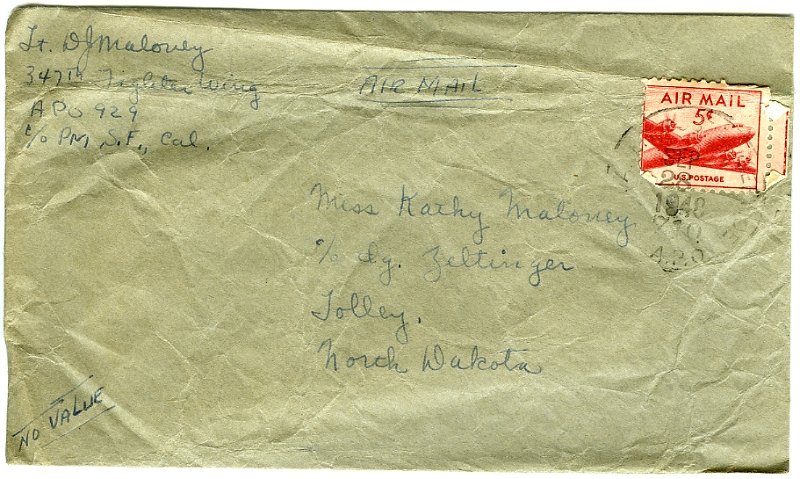 Lt. DJ Maloney
347th Fighter Wing
APO 929
c/o PM S.F., Cal.
AIR MAIL
AIR MAIL
5¢
U.S. POSTAGE
SEP
1948
A.P.O.
Miss Kathy Maloney
c/o Sy. Zeltinger
Tolley,
North Dakota
NO VALUE